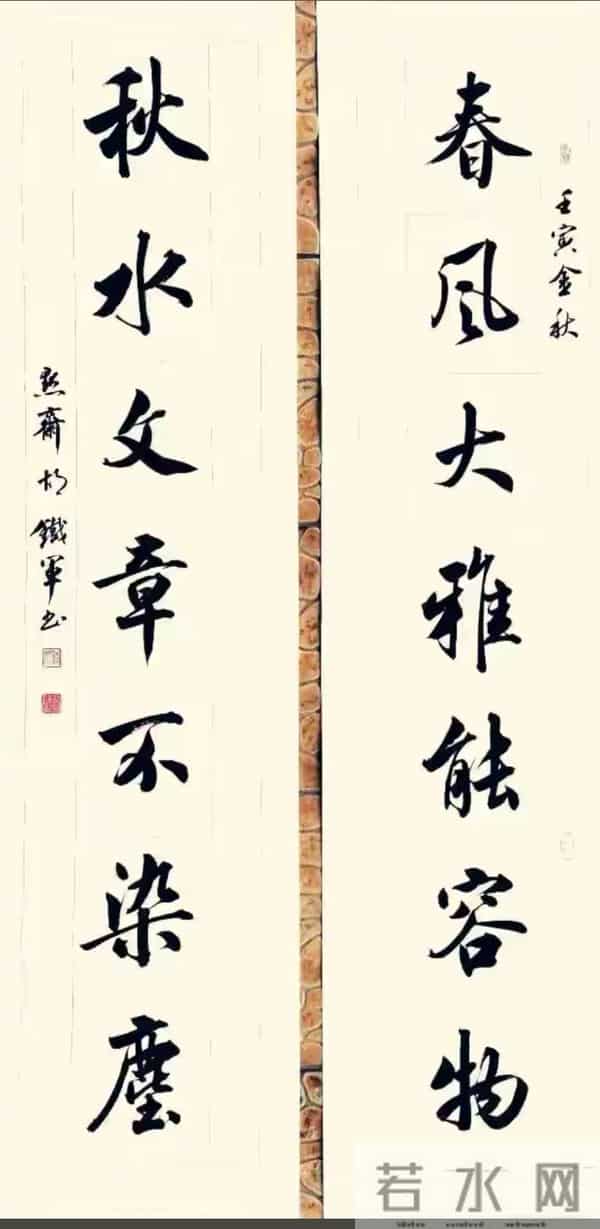 壬寅金秋
春风大雅能容物
秋水文章不染尘
齋 胡鐵軍书
若水网